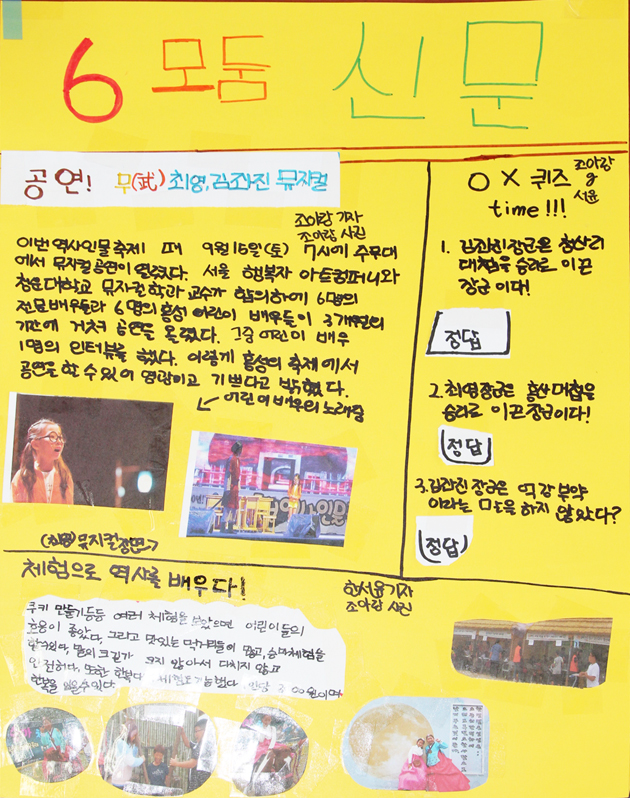 6 모둠 신문
공연! 무(武) 최영, 김좌진 뮤지컬
조아람 기자
조아람 사진
이번 역사인물축제 때 9월 15일(토) 7시에 주무대
에서 뮤지컬 공연이 열렸다. 서울 행복자 아트컴퍼니와
청운대학교 뮤지컬학과 교수가 합의하에 6명의
전문배우들과 6명의 홍성 어린이 배우들이 3개월의
기간에 거쳐 공연을 올렸다. 그중 어린이 배우
1명의 인터뷰를 했다. 이렇게 홍성의 축제에서
공연을 할 수 있어 영광이고 기쁘다고 밝혔다.
어린이 배우의 노래중
뮤지컬 장면
O X 퀴즈 조아람
& 서윤
time!!!
1. 김좌진장군은 청산리
대첩을 승리로 이끈
장군이다!
정답
2. 최영장군은 홍산대첩을
승리로 이끈장군이다!
정답
3. 김좌진 장군은
이라는 말을 하지 않았다?
정답
체험으로 역사를 배우다!
한서윤기자
조아람 사진
쿠키 만들기등등 여러 체험을 보았으면 어린이들의
호응이 좋았다. 그리고 맛있는 먹거리들이 많고, 승마체험을
할수있다. 말의 크기가 크지 않아서 다치지 않고
안전하다. 또한 한복 체험도 가능했다
한복을 입을수있다.